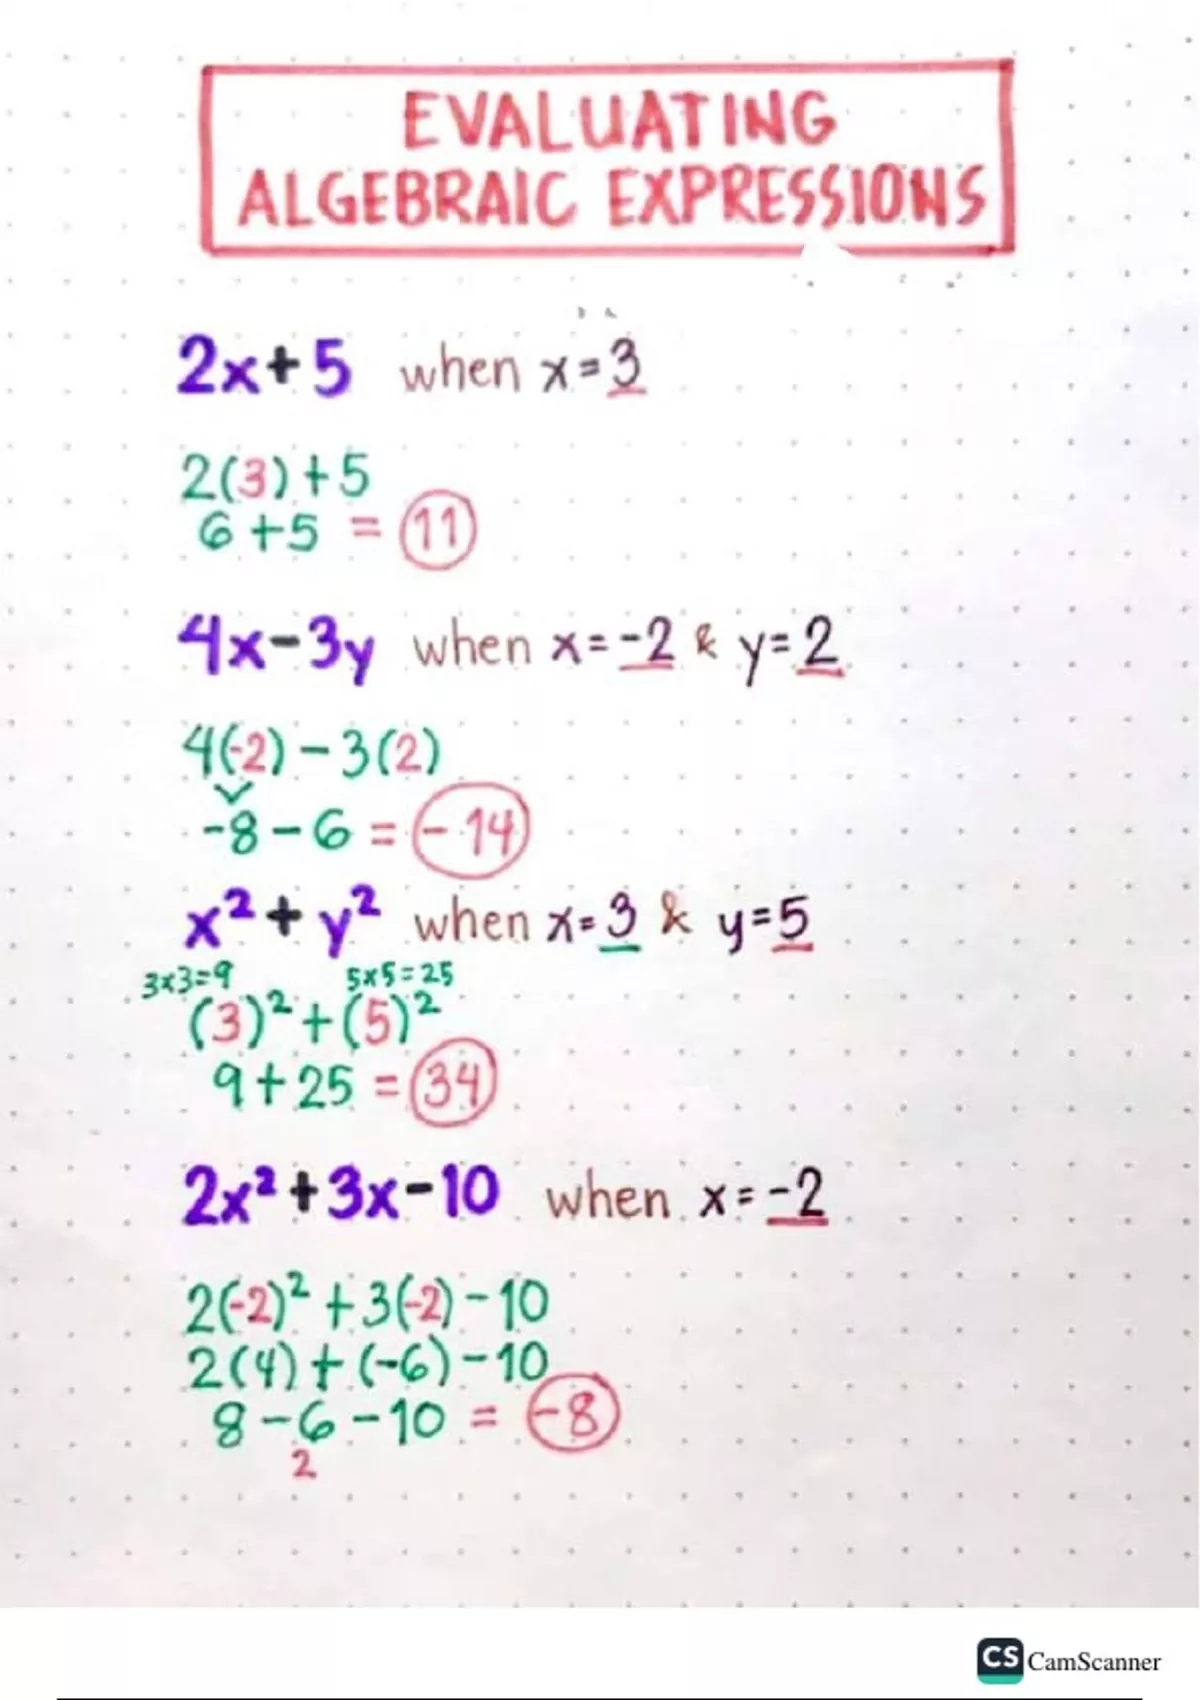 EVALUATING
ALGEBRAIC EXPRESSIONS
2x+5 when x=3
2(3)+5
6+5 = 11
4x-3y when x=-2 & y=2
4(-2)-3(2)
-8-6 = -14
x²+y² when x=3 & y=5
3x3=9 5x5=25
(3)²+(5)²
9+25 = 34
2x²+3x-10 when x=-2
2(-2)²+3(-2)-10
2(4)+(-6)-10
8-6-10 = -8
2
CS CamScanner